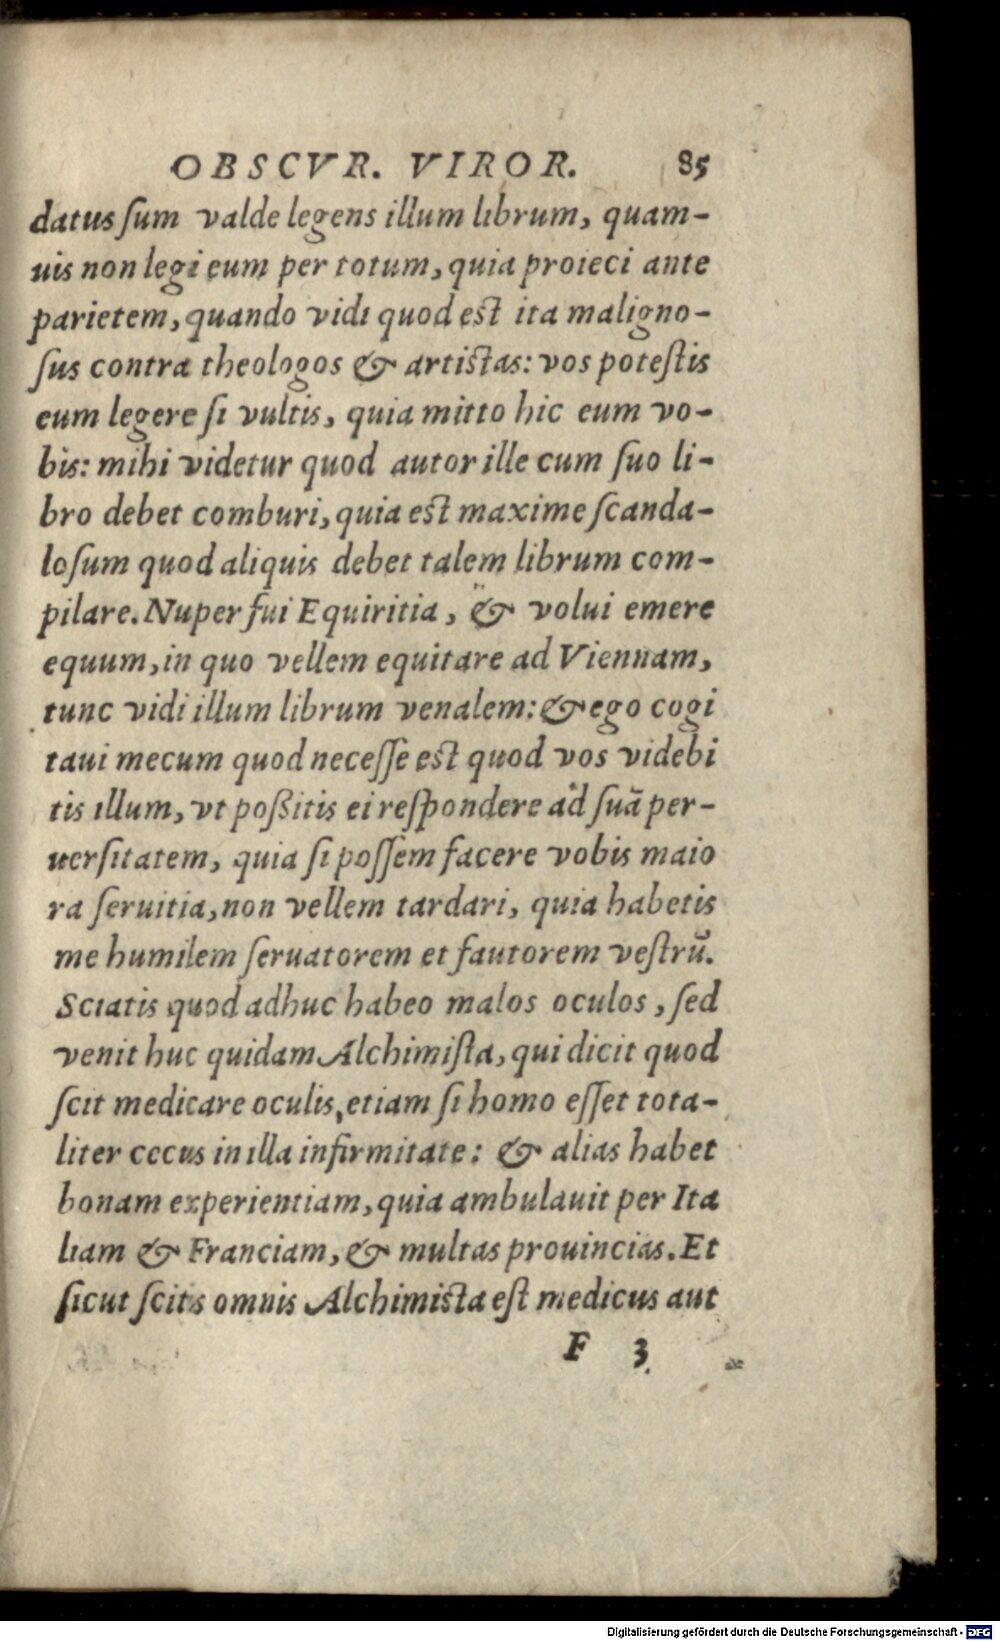 OBSCVR. VIROR. 85
datus ſum valde legens illum librum, quam-
uis non legi eum per totum, quia proieci ante
parietem, quando vidi quod est ita maligno-
ſus contra theologos & artistas: vos poteſtis
eum legere ſi vultis, quia mitto hic eum vo-
bis: mihi videtur quod autor ille cum ſuo li-
bro debet comburi, quia est maxime ſcanda-
loſum quod aliquis debet talem librum com-
pilare. Nuper fui Equiritia, & volui emere
equum, in quo vellem equitare ad Viennam,
tunc vidi illum librum venalem: & ego cogi
taui mecum quod neceſſe est quod vos videbi
tis illum, vt poßitis ei reſpondere ad ſuã per-
uerſitatem, quia ſi poſſem facere vobis maio
ra ſeruitia, non vellem tardari, quia habetis
me humilem ſeruatorem et fautorem veſtrũ.
Sciatis quod adhuc habeo malos oculos, ſed
venit huc quidam Alchimiſta, qui dicit quod
ſcit medicare oculis, etiam ſi homo eſſet tota-
liter cecus in illa infirmitate: & alias habet
bonam experientiam, quia ambulauit per Ita
liam & Franciam, & multas prouincias. Et
ſicut ſcitis omnis Alchimista eſt medicus aut
F 3
Digitalisierung gefördert durch die Deutsche Forschungsgemeinschaft - DFG